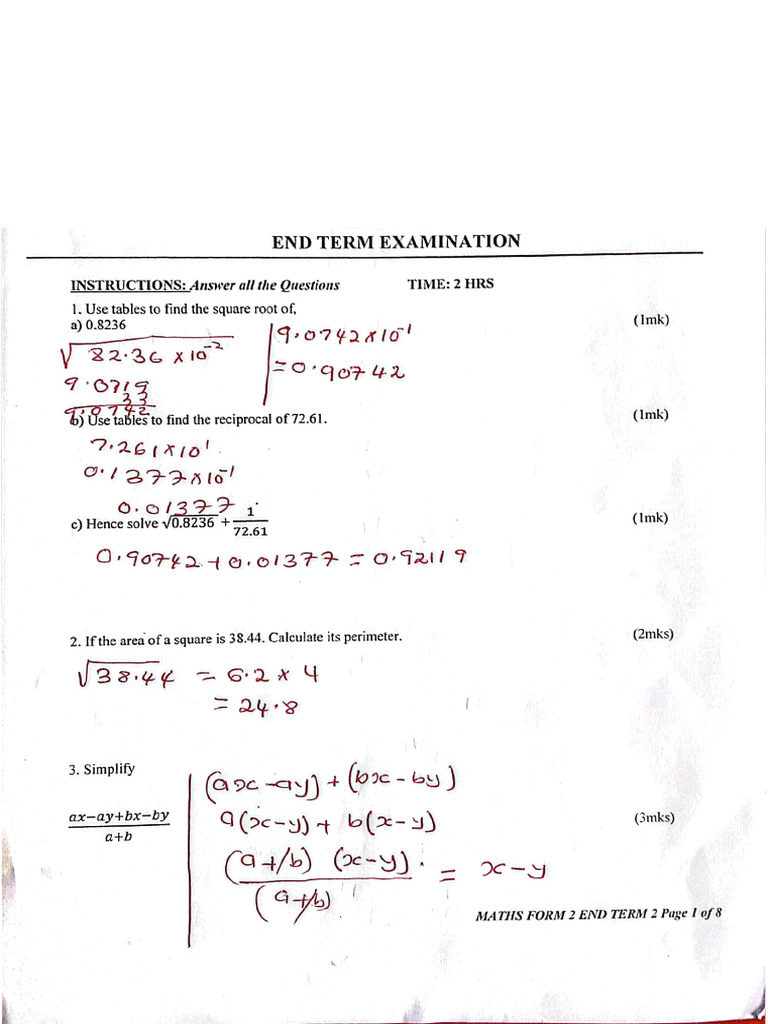 END TERM EXAMINATION
INSTRUCTIONS: Answer all the Questions TIME: 2 HRS
1. Use tables to find the square root of,
a) 0.8236 (1mk)
√82.36 × 10⁻²
9.0719
33
9.0742
9.0742 × 10⁻¹
= 0.90742
b) Use tables to find the reciprocal of 72.61. (1mk)
7.261 × 10¹
0.1377 × 10⁻¹
0.01377
c) Hence solve √0.8236 + 1/72.61 (1mk)
0.90742 + 0.01377 = 0.92119
2. If the area of a square is 38.44. Calculate its perimeter. (2mks)
√38.44 = 6.2 × 4
= 24.8
3. Simplify
ax−ay+bx−by/a+b (3mks)
(ax − ay) + (bx − by)
a(x − y) + b(x − y)
(a+b) (x−y)/(a+b) = x − y
MATHS FORM 2 END TERM 2 Page 1 of 8